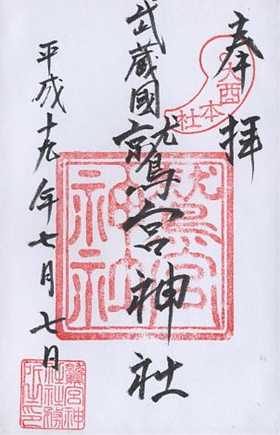 奉拝
大酉
本社
武蔵國鷲宮神社
鷲宮
神社
平成十九年七月七日
鷲宮神
社社務
所之印